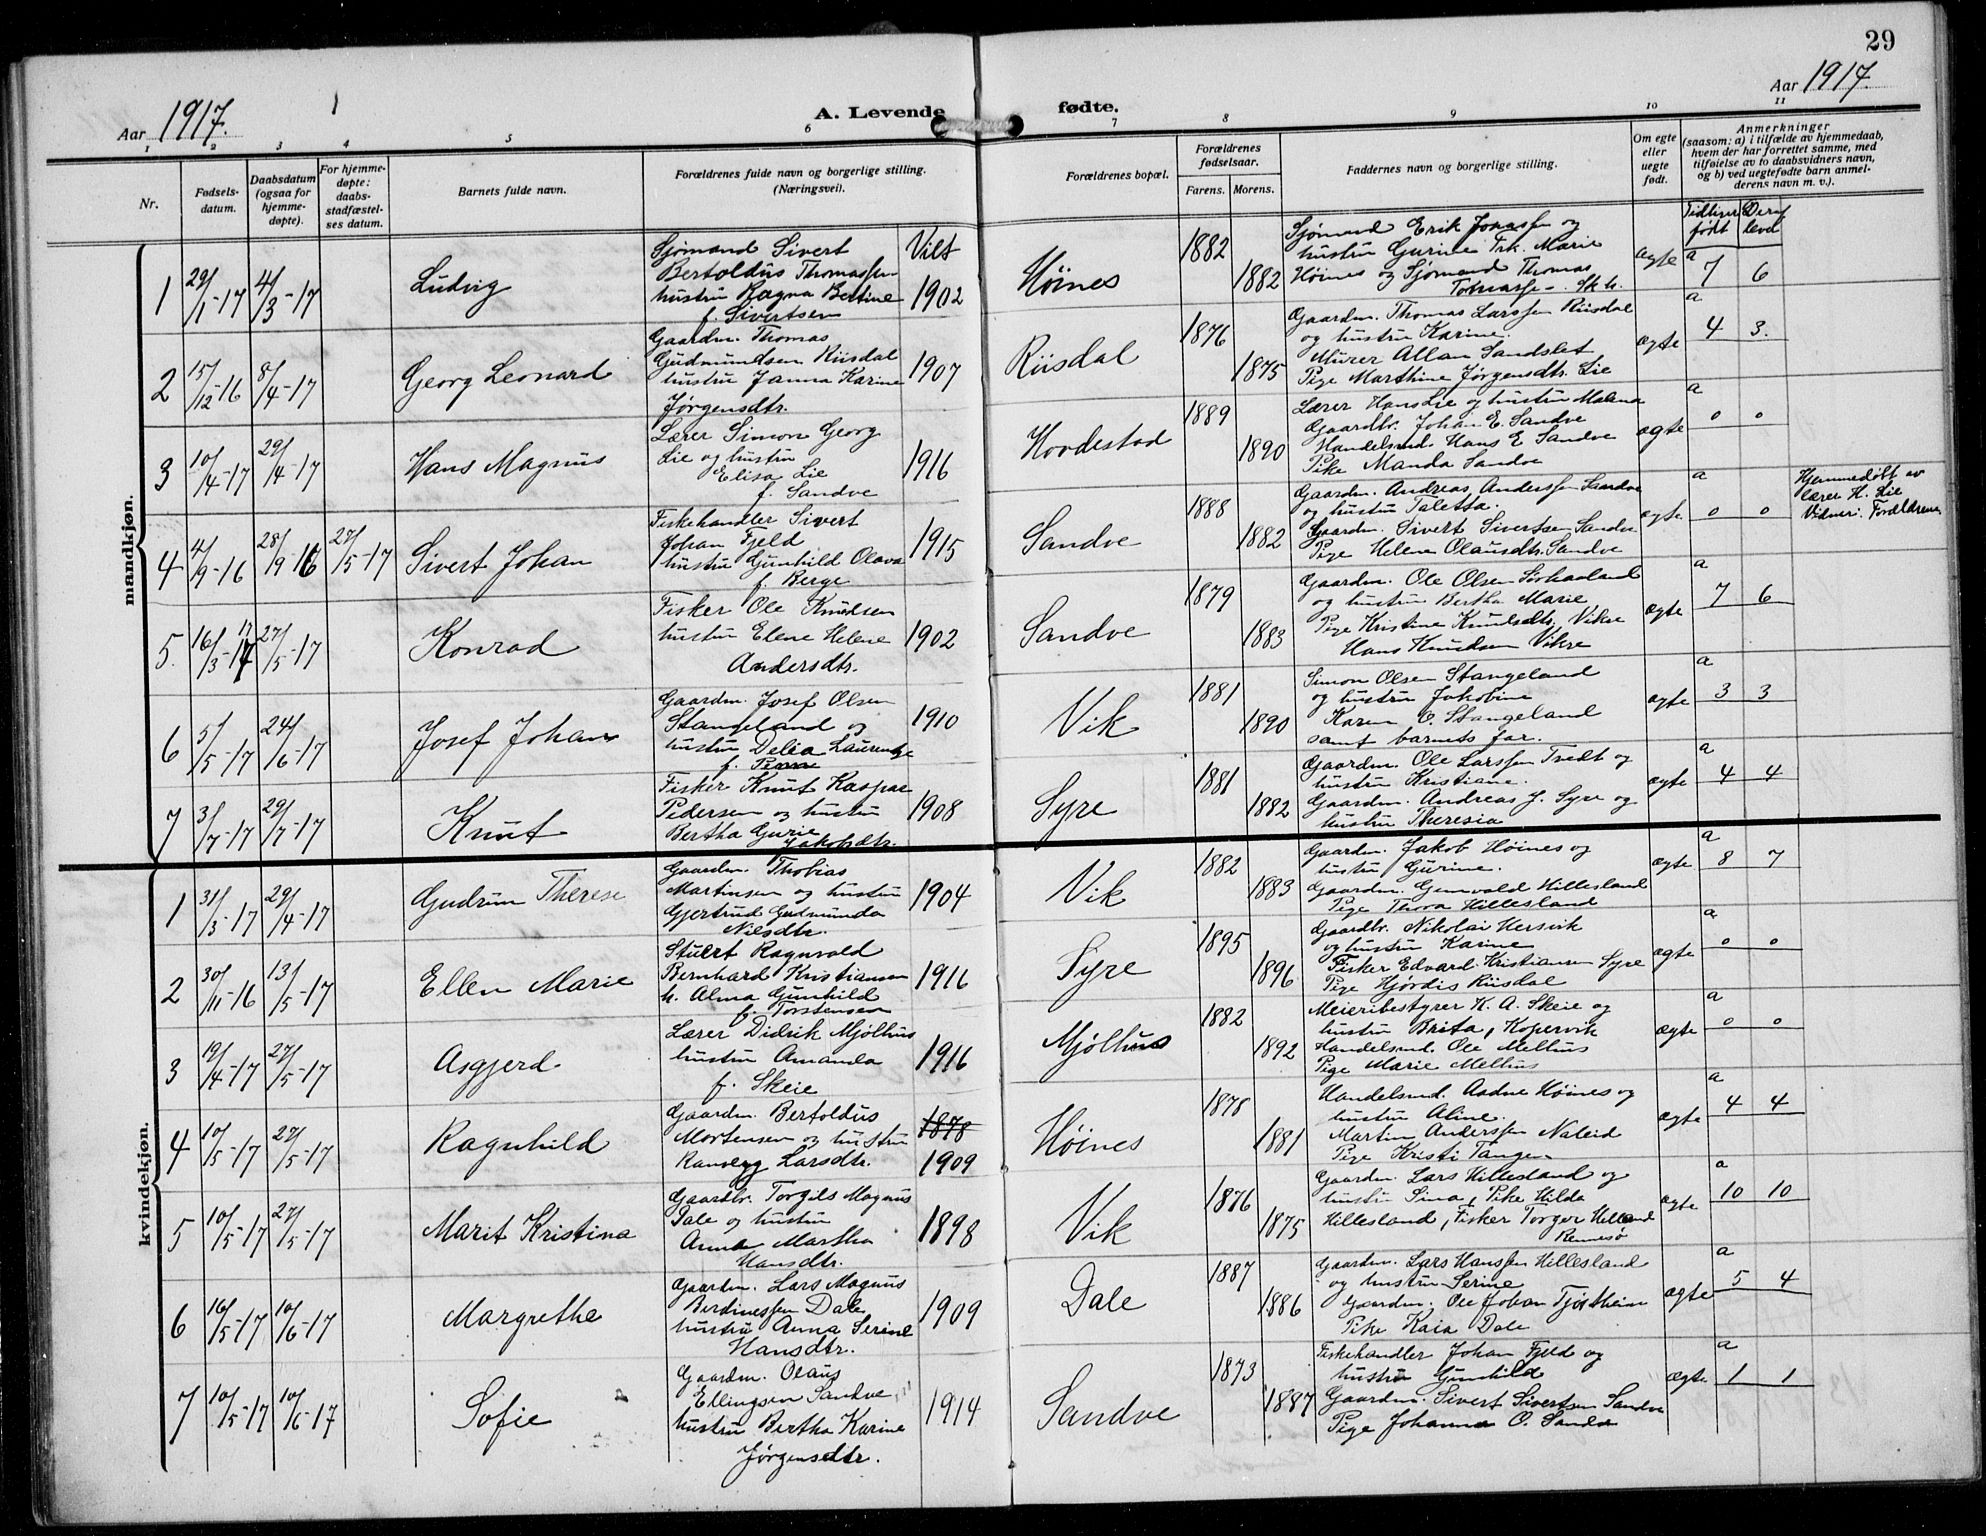 29
Aar 1917.
A. Levende fødte.
Aar 1917.
1 2 3 4 5 6 7 8 9 10 11
Nr.
Fødsels-
datum.
Daabsdatum
(ogsaa for
hjemme-
døpte).
For hjemme-
døpte:
daabs-
stadfæstel-
ses datum.
Barnets fulde navn.
Forældrenes fulde navn og borgerlige stilling.
(Næringsvei).
Forældrenes bopæl.
Forældrenes
fødselsaar.
Farens. Morens.
Faddernes navn og borgerlige stilling.
Om egte
eller
uegte
født.
Anmerkninger
(saasom: a) i tilfælde av hjemmedaab,
hvem der har forrettet samme, med
tilføielse av to daabsvidners navn,
og b) ved uegtefødte barn anmel-
derens navn m. v.).
Viet
Tidliger
født
Derof
leva
mandkjøn.
1 29/1-17 4/3-17 Ludvig
Sjømand Sivert
Bertoldus Thomassen
hustru Ragna Bertine
f. Sivertsen
1902 Høines 1882 1882
Sjømand Erik Jonassen og
hustru Gurine Trk. Marie
Høines og Sjømand Thomas
Tomasse- Sk.h.
ægte a 7 6
2 15/12-16 8/4-17 Georg Leonard
Gaardm. Thomas
Gudmundsen Riisdal
hustru Janna Karine
Jørgensdtr.
1907 Riisdal 1876 1875
Gaardm. Thomas Larssen Riisdal
og hustru Karine.
Murer Allan Sandslet
Pige Marthine Jørgensdtr. Lie
ægte a 4 3.
3 10/4-17 29/4-17 Hans Magnus
Lærer Simon Georg
Lie og hustru
Elisa Lie
f. Sandve
1916 Hovdestad 1889 1890
Lærer Hans Lie og hustru Malena
Gaardbr. Johan E. Sandve
Handelsmd. Hans E Sandve
Pike Manda Sandve
ægte a 0 0
4 4/9-16 28/9 16 27/5-17 Sivert Johan
Fiskehandler Sivert
Johan Fjeld
hustru Gunhild Olava
f. Berge
1915 Sandve 1888 1882
Gaardm. Andreas Anderssen Sandve
og hustru Taletta.
Gaardm. Sivert Sivertsen Sandve
Pige Helene Olausdtr. Sandve
ægte a 0 0
Hjemmedøpt av
lærer H. Lie
Vidner: Forældrene
5. 16/3-17 27/5-17 Konrad
Fisker Ole Knudsen
hustru Elene Helene
Andersdtr.
1902 Sandve 1879 1883
Gaardm. Ole Olsen Sørhaaland
og hustru Bertha Marie
Pige Kristine Knudsdtr. Vikre
Hans Knudsen Vikre
ægte a 7 6
6 5/5-17 24/6-17 Josef Johan
Gaardm. Josef Olsen
Stangeland og
hustru Delia Laurentse
f.
1910 Vik 1881 1890
Simon Olsen Stangeland
og hustru Jakobine
Karen O. Stangeland
samt barnets far.
ægte a 3 3
7 3/7-17 29/7-17 Knut
Fisker Knut Kaspar
Pedersen og hustru
Bertha Gurie
Jakobsdtr.
1908 Syre 1881 1882
Gaardm. Ole Larssen Tvedt og
hustru Kristiane.
Gaardm. Andreas J. Syre og
hustru Theresia
ægte a 4 4
kvindekjøn.
1 31/3-17 29/4-17 Gudrun Therese
Gaardm. Thobias
Martinsen og hustru
Gjertrud Gudmunda
Nilsdtr.
1904 Vik 1882 1883
Gaardm. Jakob Høines og
hustru Gurine.
Gaardm. Gunvald Hillesland
Pige Thora Hillesland
ægte a 8 7
2 30/11-16 13/5-17 Ellen Marie
Stuert Ragnvald
Bernhard Kristiansen
h. Alma Gunhild
f. Torstensen
1916 Syre 1895 1896
Gaardbr. Nikolai Hersvik
og hustru Karine
Fisker Edvard Kristiansen Syre
Pige Hjørdis Riisdal
ægte a 0 0
3 19/4-17 27/5-17 Asgjerd
Lærer Didrik Mjølhus
hustru Amanda
f. Skeie
1916 Mjølhus 1882 1892
Meieribestyrer K. A. Skeie og
hustru Brita, Kopervik
Handelsmd. Ole Melhus
Pige Marie Melhus
ægte a 0 0
4 10/5-17 27/5-17 Ragnhild
Gaardm. Bertoldus
Mortensen og hustru
Ranveig Larsdtr.
1878
1909 Høines 1878 1881
Handelsmd. Aadne Høines og
hustru Aline.
Martin Anderssen Naleid
Pige Kristi Tangen
ægte a 4 4
5 10/5-17 27/5-17 Marit Kristina
Gaardbr. Torgils Magnus
Dale og hustru
Anna Martha
Hansdtr.
1898 Vik 1876 1875
Gaardm. Lars Hillesland og
hustru Sina, Pike Hilda
Hillesland, Fisker Torger Helland
Rennesø
ægte a 10 10
6 16/5-17 10/6-17 Margrethe
Gaardm. Lars Magnus
Berdinessen Dale
hustru Anna Serine
Hansdtr.
1909 Dale 1887 1886
Gaardm. Lars Hanssen Hillesland
og hustru Serine
Gaardm. Ole Johan Tjøstheim
Pike Kaia Dale
ægte a 5 4
7 10/5-17 10/6-17 Sofie
Gaardm. Olaus
Ellingsen Sandve
hustru Bertha Karine
Jørgensdtr.
1914 Sandve 1873 1887
Fiskehandler Johan Fjeld og
hustru Gunhild
Gaardm. Sivert Sivertsen Sandve
Pige Johanna O. Sandve
ægte a 1 1